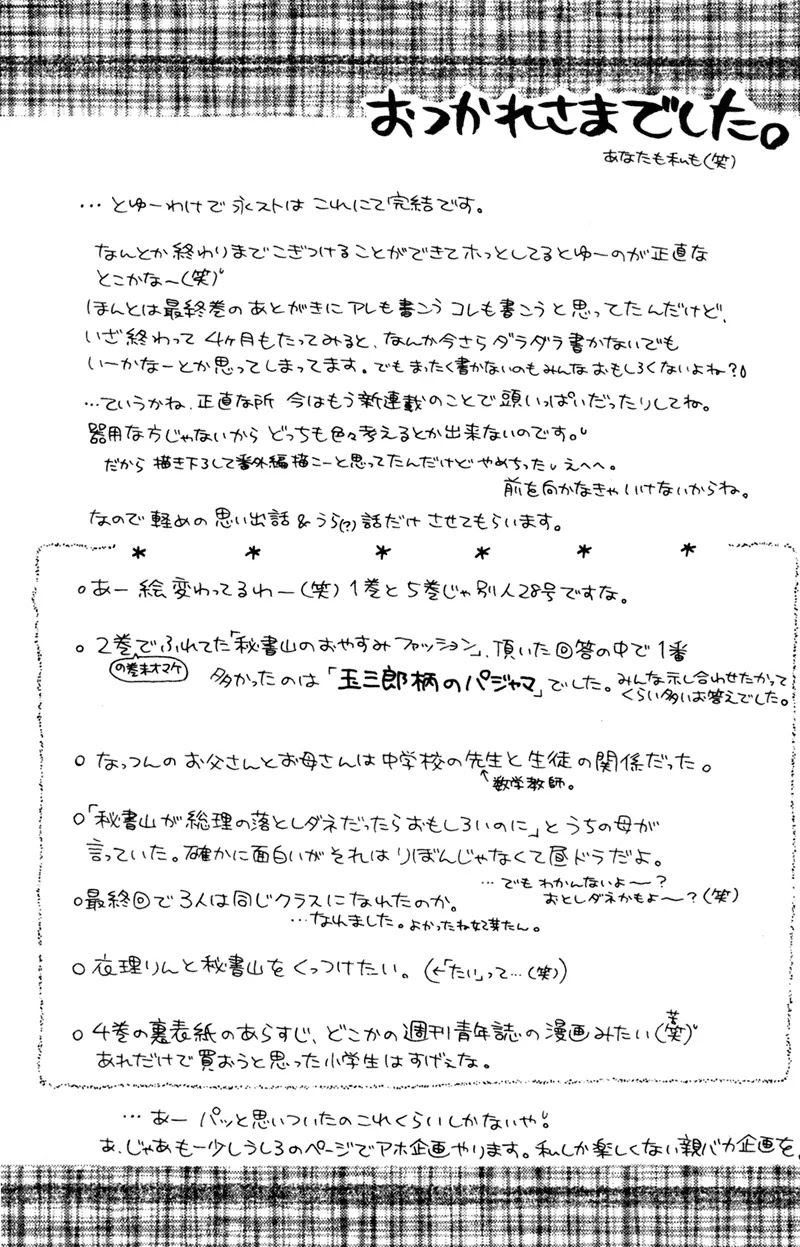 おつかれさまでした。
あなたも私も(笑)
…とゆーわけで永ストはこれにて完結です。
なんとか終わりまでこぎつけることができてホッとしてるとゆーのが正直な
とこかな〜(笑)
ほんとは最終巻のあとがきにアレも書こうコレも書こうと思ってたんだけど、
いざ終わって4ヶ月もたってみると、なんか今さらダラダラ書かないでも
いーかなーとか思ってしまってます。でもまったく書かないのもみんなおもしろくないよね?
…ていうかね、正直な所 今はもう新連載のことで頭いっぱいだったりしてね。
器用な方じゃないからどっちも色々考えるとか出来ないのです。
だから描き下ろして番外編描こーと思ってたんだけどやめちった。えへへ。
前を向かなきゃいけないからね。
なので軽めの思い出話&うら(?)話だけさせてもらいます。
* * * * * *
○あー絵変わってるわー(笑)1巻と5巻じゃ別人28号ですな。
○2巻でふれてた「秘書山のおやすみファッション」、頂いた回答の中で1番
の巻末オマケ
多かったのは「玉三郎柄のパジャマ」でした。みんな示し合わせたかって
くらい多いお答えでした。
○なっつんのお父さんとお母さんは中学校の先生と生徒の関係だった。
↑数学教師。
○「秘書山が総理の落としダネだったらおもしろいのに」とうちの母が
言っていた。確かに面白いがそれはりぼんじゃなくて昼ドラだよ。
…でもわかんないよ〜?
おとしダネかもよ〜?(笑)
○最終回で3人は同じクラスになれたのか。
…なれました。よかったね妃芽たん。
○夜理りんと秘書山をくっつけたい。(←「たい」って…(笑))
○4巻の裏表紙のあらすじ、どこかの週刊青年誌の漫画みたい(苦笑)
あれだけで買おうと思った小学生はすげぇな。
…あー パッと思いついたのこれくらいしかないや。
あ、じゃあもー少しうしろのページでアホ企画やります。私しか楽しくない親バカ企画を。